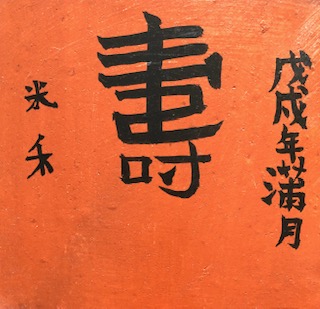 戊戌年滿月
壽
米禾